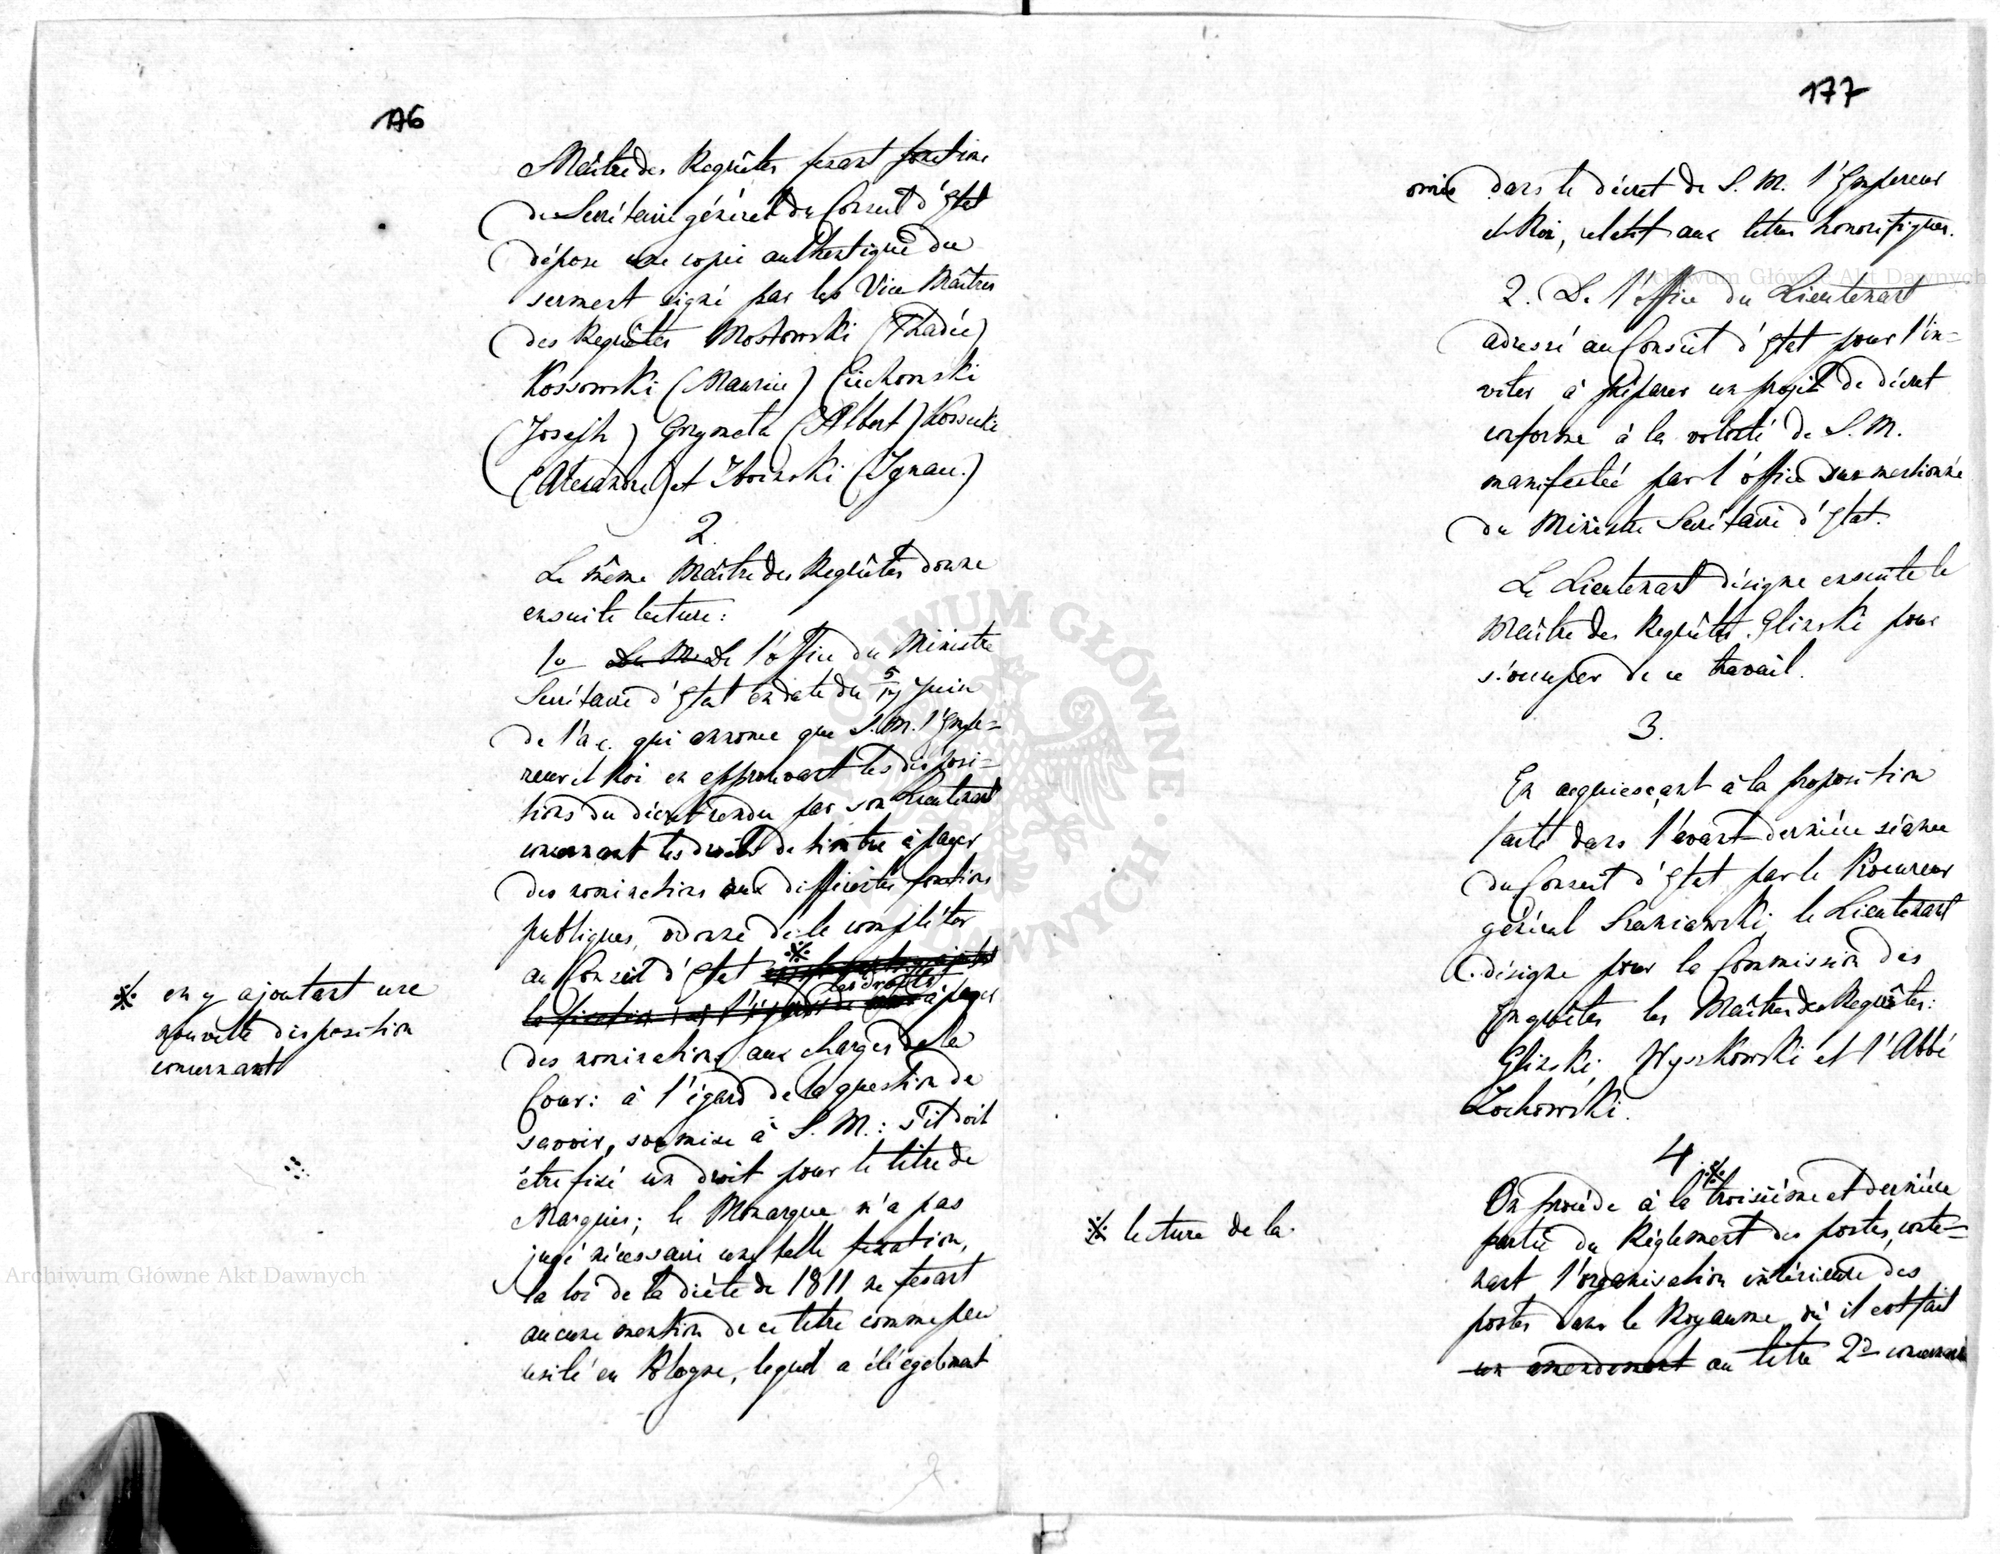 176
Maître des Requêtes fesant fonctions
de Secrétaire général du Conseil d'Etat
dépose une copie authentique du
serment signé par les Vice Maîtres
des Requêtes Mostowski (Thadée)
Kossowski (Maurice) Ciechomski
(Joseph) Grzymała (Albert) Kossecki
(Alexandre) et Iwinski (Ignace.)
2.
Le même Maître des Requêtes donne
ensuite lecture:
1o De l'office du Ministre
Secrétaire d'Etat en date du 5/17 Juin
de l'a c. qui annonce que S. M. l'Empe=
reur et Roi en approuvant les disposi=
tions du décret rendu par son Lieutenant
concernant les droits de timbre à payer
des nominations aux différentes fonctions
publiques, ordonne de le compléter
au Conseil d'Etat ※
les droits à payer
des nominations aux charges de la
Cour: à l'égard de la question de
savoir, soumise à S. M.: s'il doit
être fixé un droit pour le titre de
Marquis; le Monarque n'a pas
jugé nécessaire une telle fixation,
la loi de la diète de 1811 ne fesant
aucune mention de ce titre comme peu
usité en Pologne, lequel a été également
※ en y ajoutant une
nouvelle disposition
concernant
177
omis dans le décret de S. M. l'Empereur
et Roi, relatif aux titres honorifiques.
2. De l'office du Lieutenant
adressé au Conseil d'Etat pour l'in=
viter à préparer un projet de décret
conforme à la volonté de S. M.
manifestée par l'office susmentionné
du Ministre Secrétaire d'Etat.
Le Lieutenant désigne ensuite le
Maître des Requêtes Glinski pour
s'occuper de ce travail.
3.
En acquiesçant à la proposition
faite dans l'avant-dernière séance
du Conseil d'Etat par le Procureur
général le Lieutenant
désigne pour la Commission des
Enquêtes les Maîtres des Requêtes:
Glinski, Wyszkowski et l'Abbé
Żochowski.
4.
On procède à la ※ troisième et dernière
partie du Règlement des postes, conte=
nant l'organisation intérieure des
postes dans le Royaume, où il est fait
un amendement au titre 2d concernant
※ lecture de la
Archiwum Główne Akt Dawnych
Archiwum Główne Akt Dawnych
ARCHIWUM GŁÓWNE AKT DAWNYCH